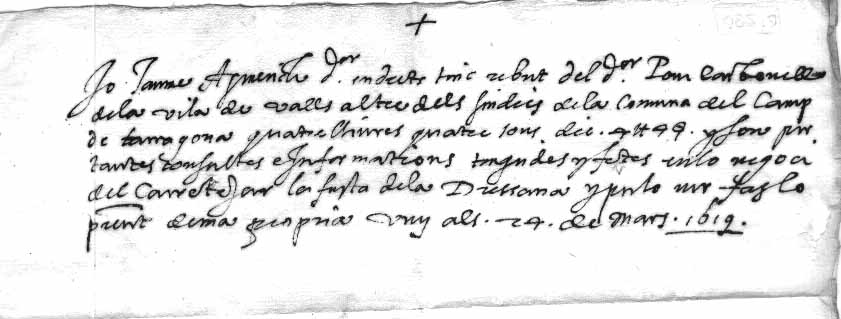 +
Jo Jaume Aguench d.or en drets tinc rebut del d.or Pau Carbonell
de la vila de Valls altre dels sindics de la Comuna del Camp
de tarragona quatre lliures quatre sous. dic. 4 ll 4 s. y son per
tantes consultes e Informations tingudes y fetes en lo negoci
del Carretejar la fusta de la Dressana y per lo ver fas lo
pnt de ma propria vuy als. 24. de Mars. 1619.